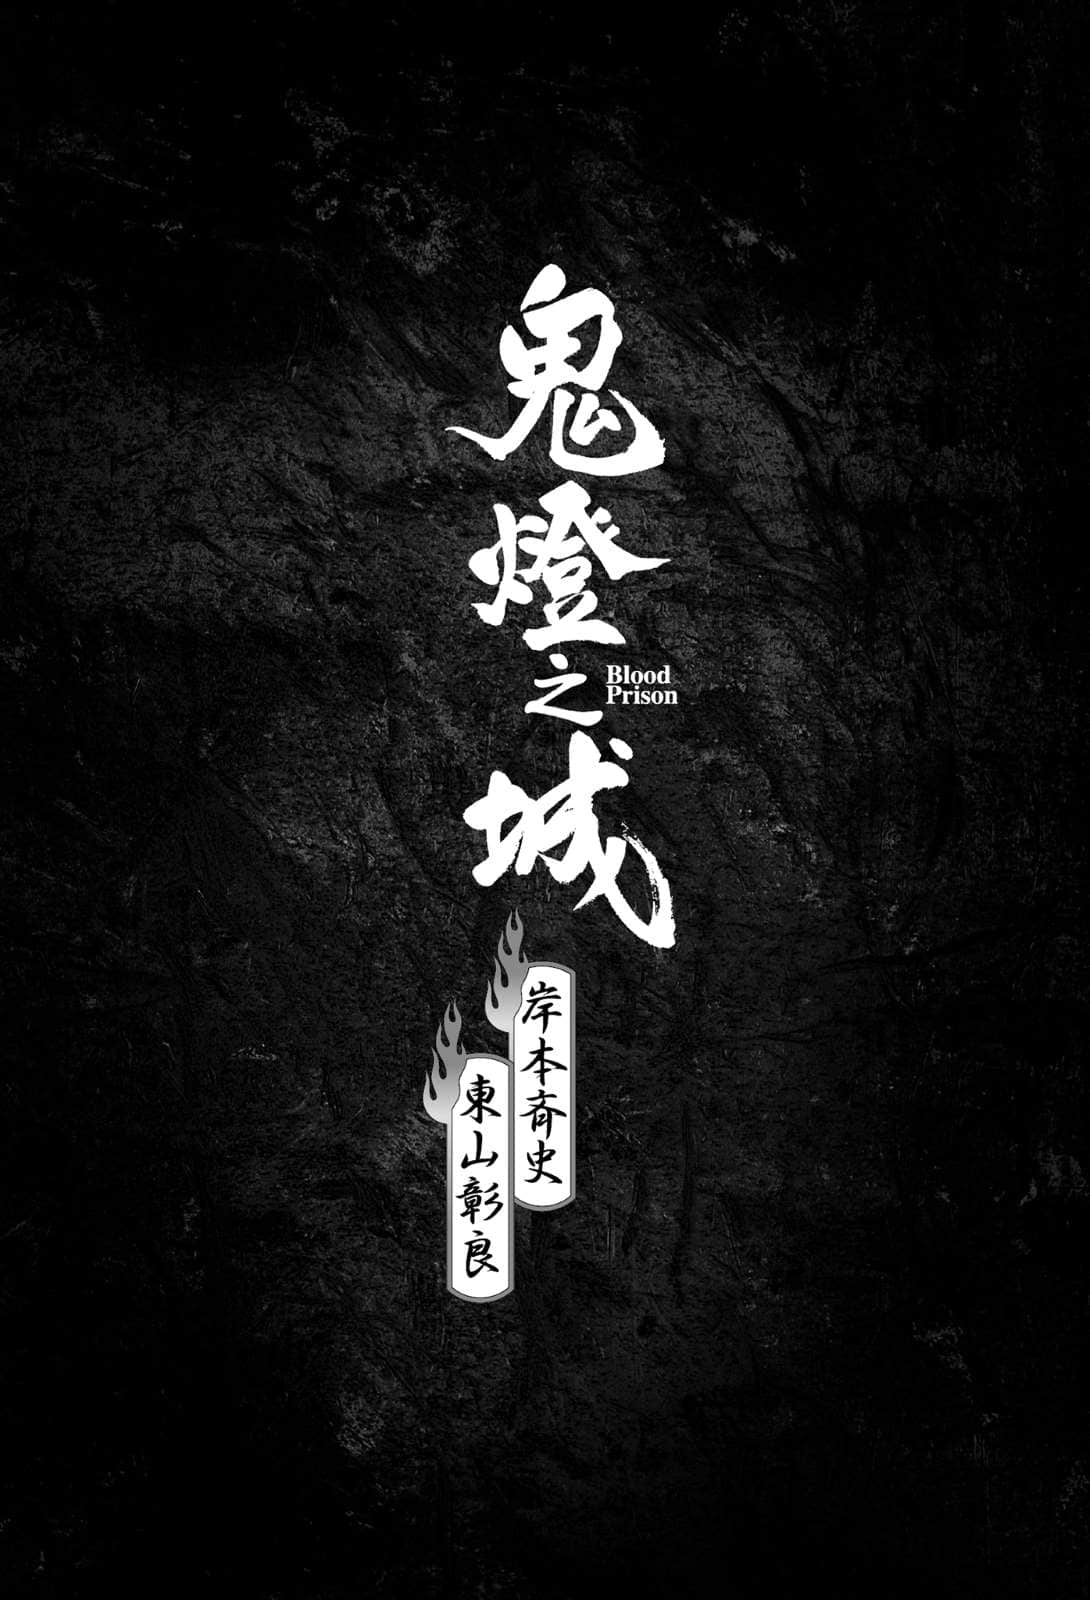 鬼燈之城
Blood
Prison
岸本斉史
東山彰良